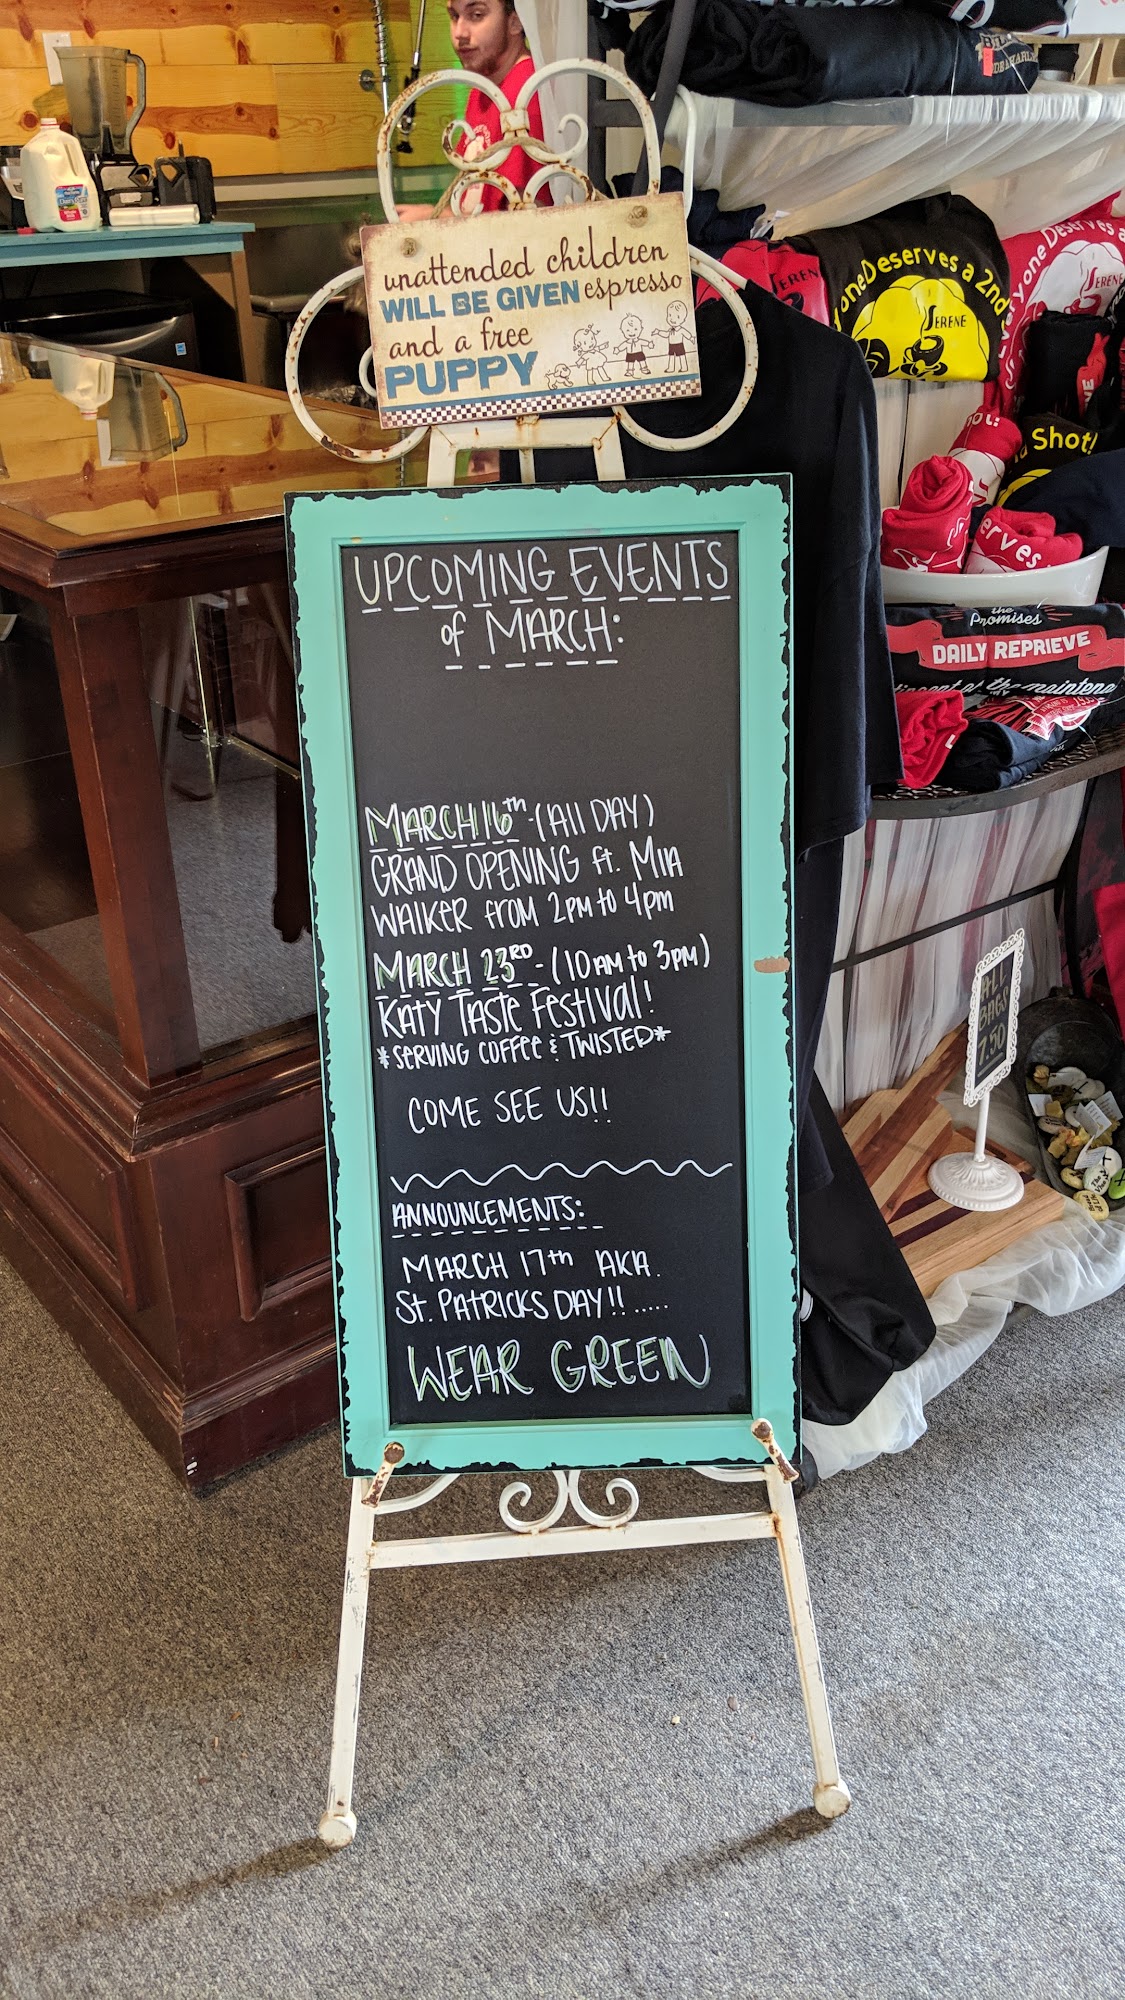 unattended children
WILL BE GIVEN espresso
and a free
PUPPY
UPCOMING EVENTS
of MARCH:
MARCH 16th - (All DAY)
GRAND OPENING ft. MIA
WAlKER from 2pm to 4pm
MARCH 23RD - (10AM to 3PM)
KATY TASTE FESTIVAl!
*SERVING COFFEE & TWISTED*
COME SEE US!!
ANNOUNCEMENTS:
MARCH 17th AKA.
St. PATRICKS DAY!! .....
WEAR GREEN
yone Deserves a 2nd
SERENE
yone Deserves a
SERENE
SEREN
d Shot!
erves
the
Promises
DAILY REPRIEVE
ALL
BAGS
7.50